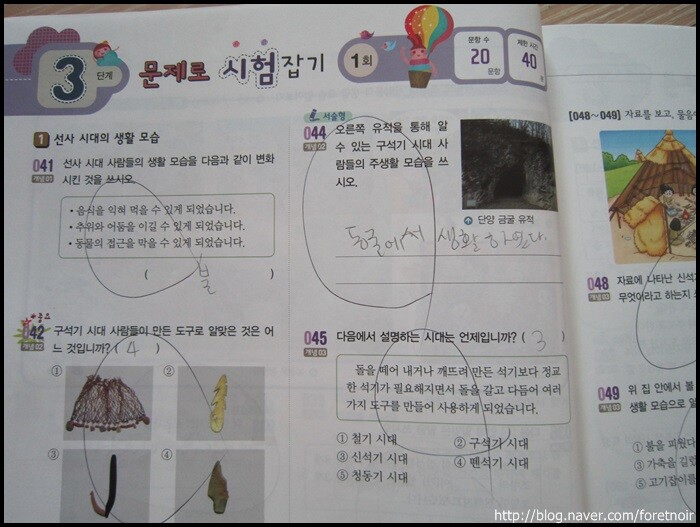 3 단계 문제로 시험잡기 1회
문항 수 20 문항
제한 시간 40
1 선사 시대의 생활 모습
041 선사 시대 사람들의 생활 모습을 다음과 같이 변화
개념 01 시킨 것을 쓰시오.
• 음식을 익혀 먹을 수 있게 되었습니다.
• 추위와 어둠을 이길 수 있게 되었습니다.
• 동물의 접근을 막을 수 있게 되었습니다.
( 불 )
042 구석기 시대 사람들이 만든 도구로 알맞은 것은 어
개념 02 느 것입니까? ( 4 )
①
②
③
④
서술형
044 오른쪽 유적을 통해 알
개념 02 수 있는 구석기 시대 사
람들의 주생활 모습을 쓰
시오.
단양 금굴 유적
동굴에서 생활하였다.
045 다음에서 설명하는 시대는 언제입니까? ( 3 )
개념 03
돌을 떼어 내거나 깨뜨려 만든 석기보다 정교
한 석기가 필요해지면서 돌을 갈고 다듬어 여러
가지 도구를 만들어 사용하게 되었습니다.
① 철기 시대 ② 구석기 시대
③ 신석기 시대 ④ 뗀석기 시대
⑤ 청동기 시대
[048~049] 자료를 보고, 물음
048 자료에 나타난 신석
개념 03 무엇이라고 하는지 쓰
049 위 집 안에서 볼
개념 03 생활 모습으로 알
① 불을 피웠다
③ 가축을 길렀
⑤ 고기잡이를
http://blog.naver.com/foretnoir